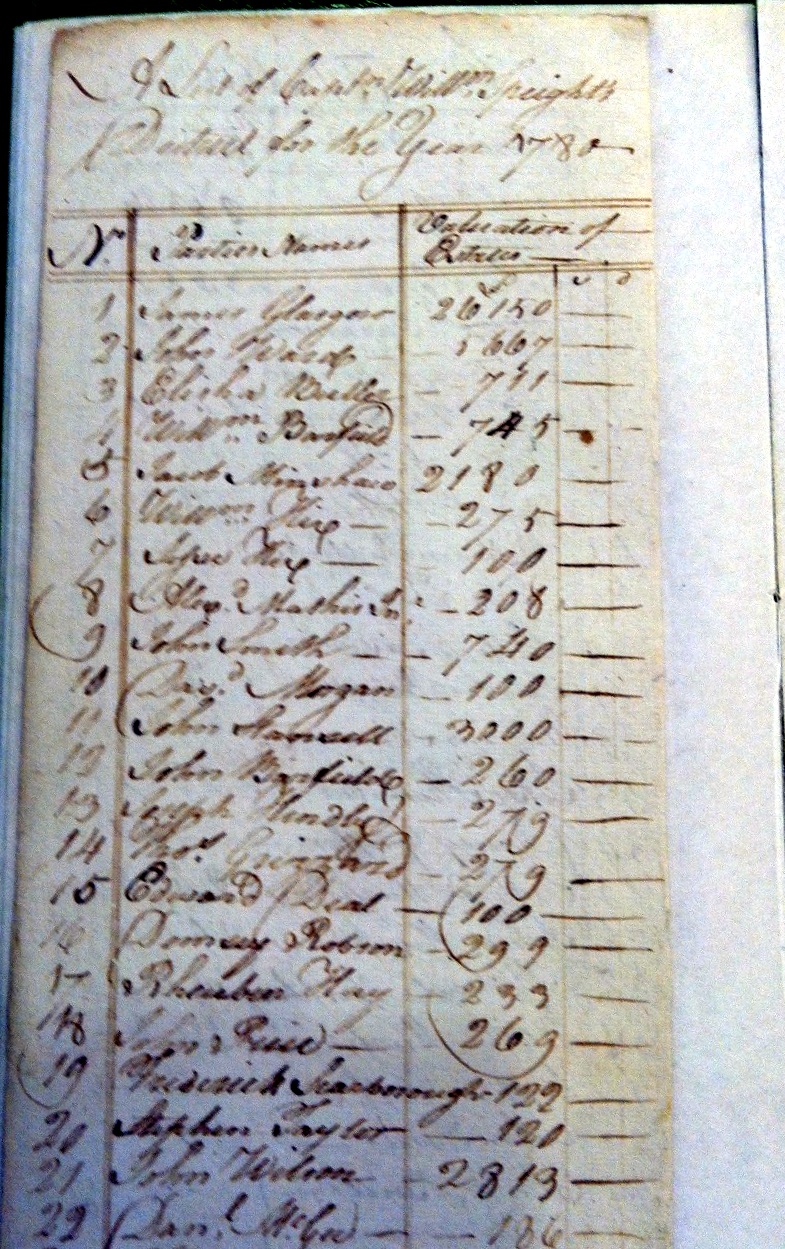 A List of Captn. Willm. Speights
District for the Year 1780
No. Parties Names Valuation of Estates
£ s d
1 James Glasgow 26150
2 John Ward 5667
3 Elisha 711
4 Willm. Barfield 745
5 Jacob Minshew 2180
6 Willm. Hix 275
7 Hix 100
8 Alexd. Mathis 208
9 John Smith 740
10 Davd. Morgan 100
11 John 3000
12 John Barfield 260
13 Joseph 279
14 Thos. 279
15 Edward Deal 100
16 299
17 Rheuben Hay 233
18 John 269
19 Frederick Scarborough 122
20 Stephen Taylor 120
21 John Wilson 2813
22 Danl. McGee 186